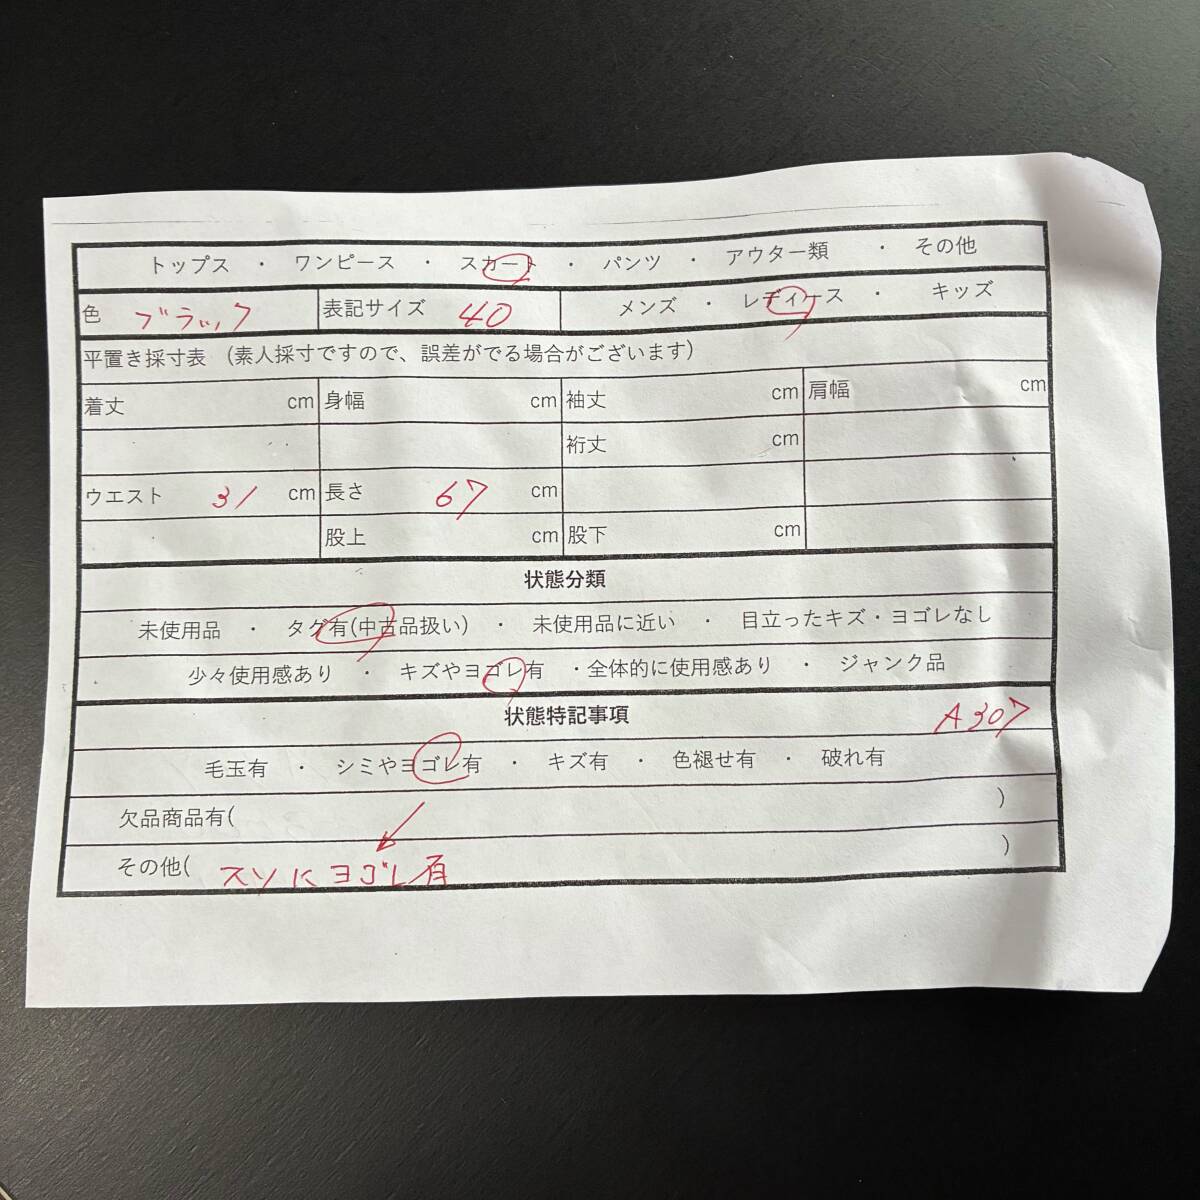 トップス ・ ワンピース ・ スカート ・ パンツ ・ アウター類 ・ その他
色 ブラック 表記サイズ 40 メンズ ・ レディース ・ キッズ
平置き採寸表 (素人採寸ですので、誤差がでる場合がございます)
着丈 cm 身幅 cm 袖丈 cm 肩幅 cm
裄丈 cm
ウエスト 31 cm 長さ 67 cm
股上 cm 股下 cm
状態分類
未使用品 ・ タグ有(中古品扱い) ・ 未使用品に近い ・ 目立ったキズ・ヨゴレなし
少々使用感あり ・ キズやヨゴレ有 ・全体的に使用感あり ・ ジャンク品
状態特記事項 A307
毛玉有 ・ シミやヨゴレ有 ・ キズ有 ・ 色褪せ有 ・ 破れ有
欠品商品有( )
その他( スソにヨゴレ有 )